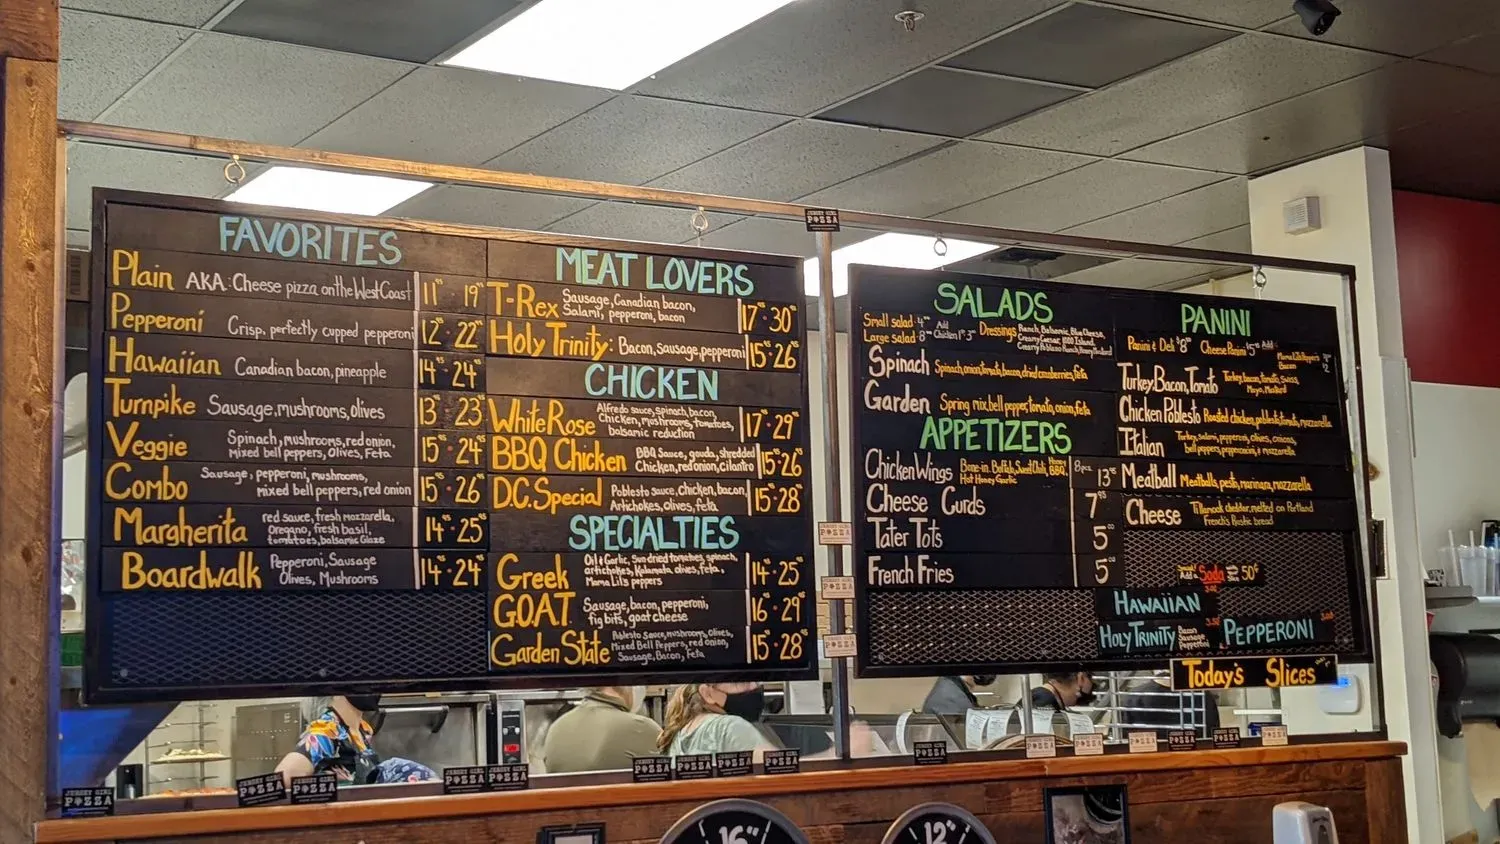 FAVORITES
Plain AKA: Cheese pizza on the West Coast 11⁹⁵ 19⁹⁵
Pepperoni Crisp, perfectly cupped pepperoni 12⁹⁵ 22⁹⁵
Hawaiian Canadian bacon, pineapple 14⁹⁵ 24⁹⁵
Turnpike Sausage, mushrooms, olives 13⁹⁵ 23⁹⁵
Veggie Spinach, mushrooms, red onion,
Mixed bell peppers, Olives, Feta 15⁹⁵ 24⁹⁵
Combo Sausage, pepperoni, mushrooms,
Mixed bell peppers, red onion 15⁹⁵ 26⁹⁵
Margherita red sauce, fresh mozzarella,
Oregano, fresh basil,
tomatoes, balsamic Glaze 14⁹⁵ 25⁹⁵
Boardwalk Pepperoni, Sausage
Olives, Mushrooms 14⁹⁵ 24⁹⁵
MEAT LOVERS
T-Rex Sausage, Canadian bacon,
Salami, pepperoni, bacon 17⁹⁵ 30⁹⁵
Holy Trinity: Bacon, sausage, pepperoni 15⁹⁵ 26⁹⁵
CHICKEN
White Rose Alfredo sauce, spinach, bacon,
Chicken, mushrooms, tomatoes,
balsamic reduction 17⁹⁵ 29⁹⁵
BBQ Chicken BBQ Sauce, gouda, shredded
Chicken, red onion, cilantro 15⁹⁵ 26⁹⁵
D.C. Special Poblesto sauce, chicken, bacon,
Artichokes, olives, feta 15⁹⁵ 28⁹⁵
SPECIALTIES
Greek Oil & Garlic, Sun dried tomatoes, spinach,
artichokes, Kalamata olives, feta,
Mama Lil's peppers 14⁹⁵ 25⁹⁵
G.O.A.T. Sausage, bacon, pepperoni,
fig bits, goat cheese 16⁹⁵ 29⁹⁵
Garden State Poblesto Sauce, mushrooms, Olives,
Mixed Bell Peppers, red onion,
Sausage, Bacon, Feta 15⁹⁵ 28⁹⁵
JERSEY GIRL
PIZZA
SALADS
Small salad
Large salad
Add
Chicken
Dressings Ranch, Balsamic, Blue Cheese,
Creamy Caesar, 1000 Island,
Creamy Poblano Ranch, Honey Mustard
Spinach Spinach, onion, tomato, bacon, dried cranberries, feta
Garden Spring mix, bell pepper, tomato, onion, feta
APPETIZERS
Chicken Wings Bone-in. Buffalo, Sweet Chili, Honey BBQ,
Hot Honey Garlic 8pcs 13⁹⁵
Cheese Curds 7⁹⁵
Tater Tots 5⁰⁰
French Fries 5⁰⁰
PANINI
Panini & Deli $8 Cheese Panini Add
Mama Lil's Peppers
Bacon $2
Turkey, Bacon, Tomato Turkey, bacon, tomato, Swiss,
Mayo, Mustard
Chicken Poblesto Roasted chicken, poblesto, tomato, mozzarella
Italian Turkey, salami, pepperoni, olives, onions,
bell peppers, pepperoncini, & mozzarella
Meatball Meatballs, pesto, marinara, mozzarella
Cheese Tillamook cheddar, melted on Portland
French's Rustic bread
Add a Soda 50¢
HAWAIIAN
HOLY TRINITY Bacon
Sausage
Pepperoni
PEPPERONI
Today's Slices
JERSEY GIRL
PIZZA
16"
12"